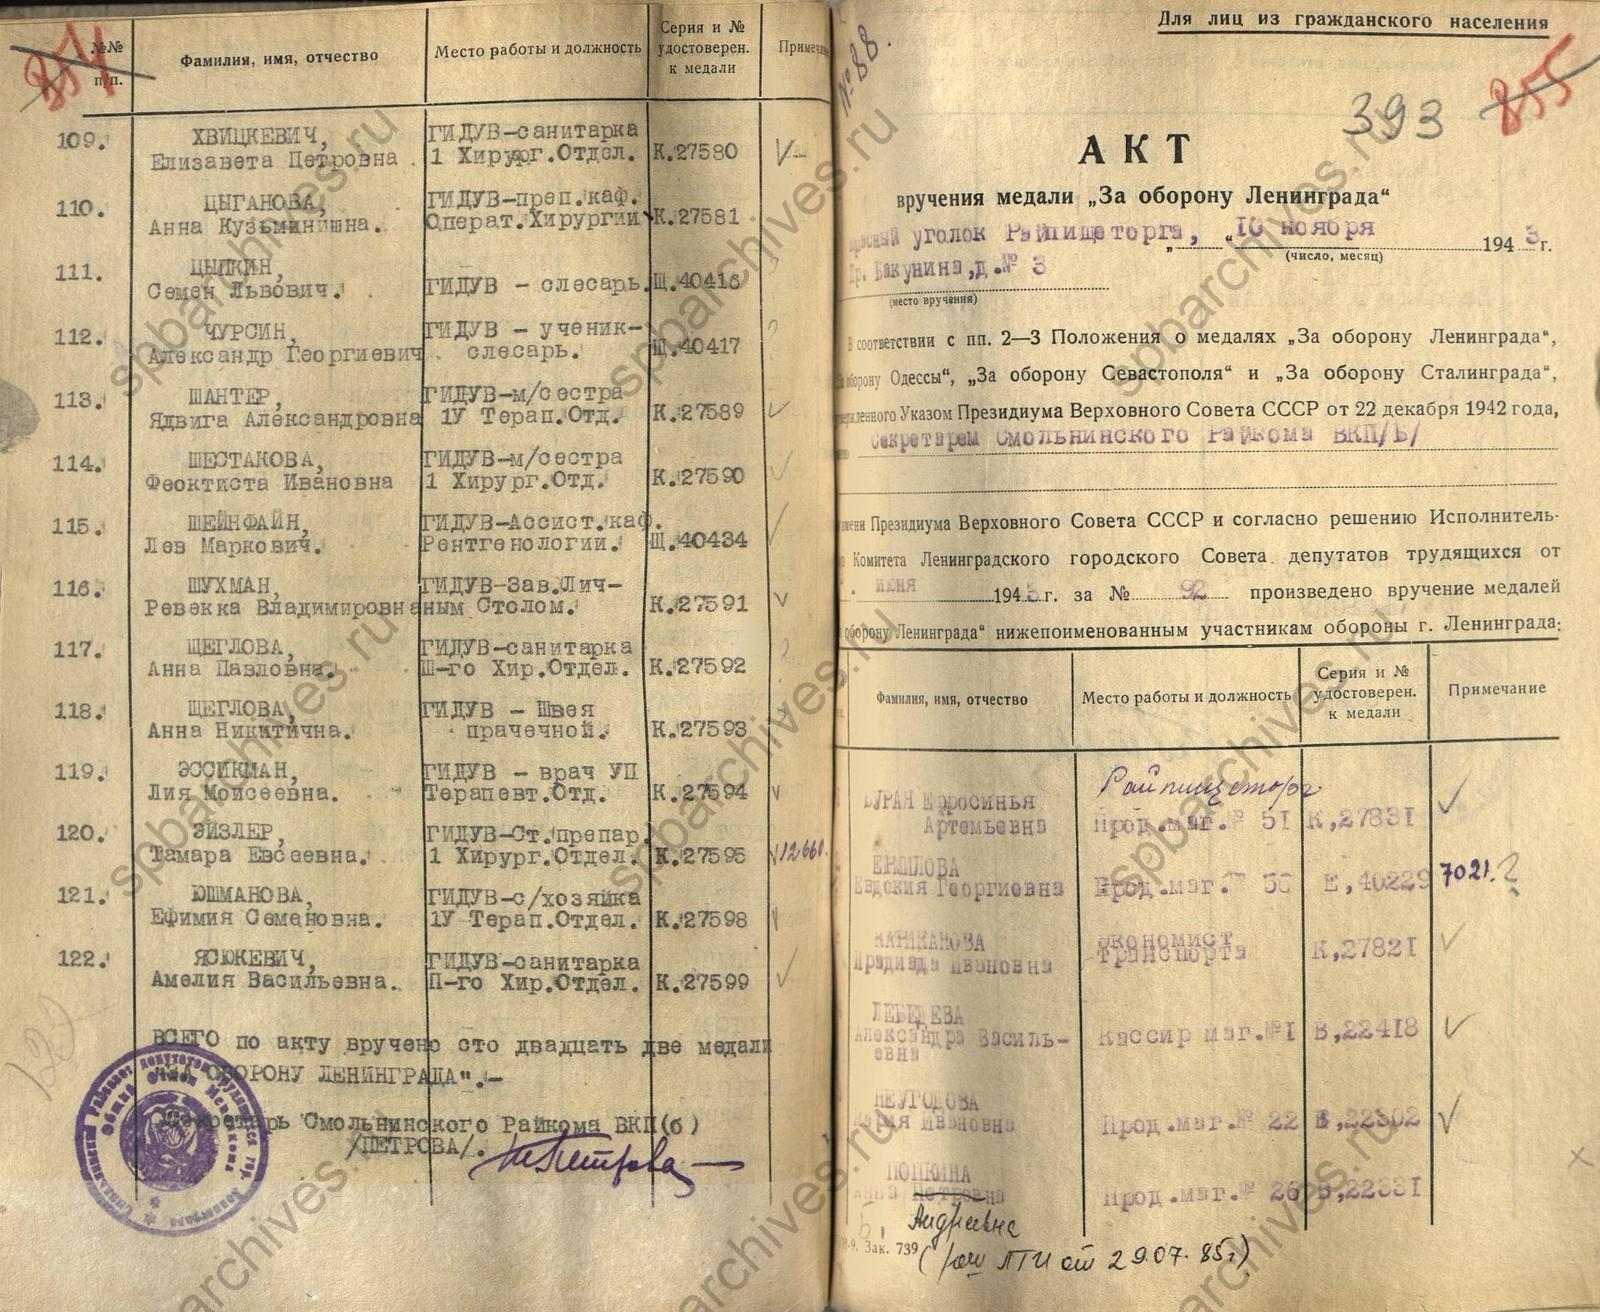 854
№№ п/п.
Фамилия, имя, отчество
Место работы и должность
Серия и № удостоверен. к медали
109. ХВИЦКЕВИЧ, ГИДУВ-санитарка
Елизавета Петровна. 1 Хирург.Отдел. К.27580
110. ЦЫГАНОВА, ГИДУВ-преп.каф.
Анна Кузьминишна. Операт.Хирургии К.27581
111. ЦЫПКИН,
Семен Львович. ГИДУВ - слесарь. Щ.40416
112. ЧУРСИН, ГИДУВ - ученик-
Александр Георгиевич. слесарь. Щ.40417
113. ШАНТЕР, ГИДУВ-м/сестра
Ядвига Александровна 1У Терап.Отд. К.27589
114. ШЕСТАКОВА, ГИДУВ-м/сестра
Феоктиста Ивановна 1 Хирург.Отд. К.27590
115. ШЕЙНФАЙН, ГИДУВ-Ассист.каф.
Лев Маркович. Рентгенологии. Щ.40434
116. ШУХМАН, ГИДУВ-Зав.Лич-
Ревекка Владимировна ным Столом. К.27591
117. ЩЕГЛОВА, ГИДУВ-санитарка
Анна Павловна. Ш-го Хир.Отдел. К.27592
118. ЩЕГЛОВА, ГИДУВ - Швея
Анна Никитична. прачечной. К.27593
119. ЭССИКМАН, ГИДУВ - врач УП
Лия Моисеевна. Терапевт.Отд. К.27594
120. ЭЙЗЛЕР, ГИДУВ-Ст.препар.
Тамара Евсеевна. 1 Хирург.Отдел. К.27595 12660.
121. ЮШМАНОВА, ГИДУВ-с/хозяйка
Ефимия Семеновна. 1У Терап.Отдел. К.27598
122. ЯСЮКЕВИЧ, ГИДУВ-санитарка
Амелия Васильевна. П-го Хир.Отдел. К.27599
ВСЕГО по акту вручено сто двадцать две медали
"ЗА ОБОРОНУ ЛЕНИНГРАДА".-
Секретарь Смольнинского Райкома ВКП(б)
/ПЕТРОВА/.
Для лиц из гражданского населения
№88.
393
855
АКТ
вручения медали „За оборону Ленинграда“
красный уголок Райпищеторга, „ „10 ноября 1943 г.
(число, месяц)
Пр. Бакунина, д.№ 3
(место вручения)
В соответствии с пп. 2—3 Положения о медалях „За оборону Ленинграда“,
оборону Одессы“, „За оборону Севастополя“ и „За оборону Сталинграда“,
Указом Президиума Верховного Совета СССР от 22 декабря 1942 года,
Секретарем Смольнинского Райкома ВКП/б/
Президиума Верховного Совета СССР и согласно решению Исполнитель-
Комитета Ленинградского городского Совета депутатов трудящихся от
июня 1943 г. за № 92 произведено вручение медалей
оборону Ленинграда“ нижепоименованным участникам обороны г. Ленинграда:
Фамилия, имя, отчество
Место работы и должность
Серия и № удостоверен. к медали
Примечание
Райпищеторг
Ефросинья
Артемьевна Прод.маг.№ 51 К,27831
ЕРМИЛОВА
Евдокия Георгиевна Прод.маг.№ Е,40229 7021. ?
Ивановна экономист транспорта К,27821
ЛЕБЕДЕВА
Александра Василь- Кассир маг.№1 В,22418
евна
НЕУГОДОВА
Мария Ивановна Прод.маг.№ 22 22302
ПОПКИНА
Анна Петровна Прод.маг.№ 26 В,22331
Андреевна
Зак. 739
(реш ЛГИ от 29.07.85г)
spbarchives.ru